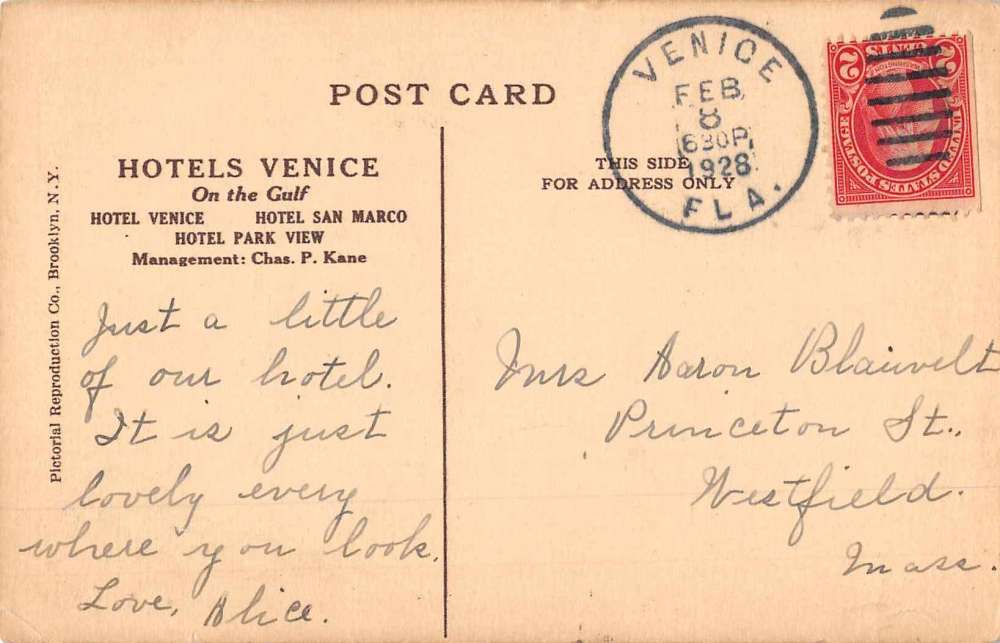 POST CARD
HOTELS VENICE
On the Gulf
HOTEL VENICE HOTEL SAN MARCO
HOTEL PARK VIEW
Management: Chas. P. Kane
Pictorial Reproduction Co., Brooklyn, N.Y.
Just a little
of our hotel.
It is just
lovely every
where you look.
Love, Alice.
VENICE
FEB
8
630P
1928
FLA.
THIS SIDE
FOR ADDRESS ONLY
2 CENTS 2
WASHINGTON
UNITED STATES POSTAGE
Mrs Aaron Blauvelt
Princeton St.,
Westfield.
Mass.